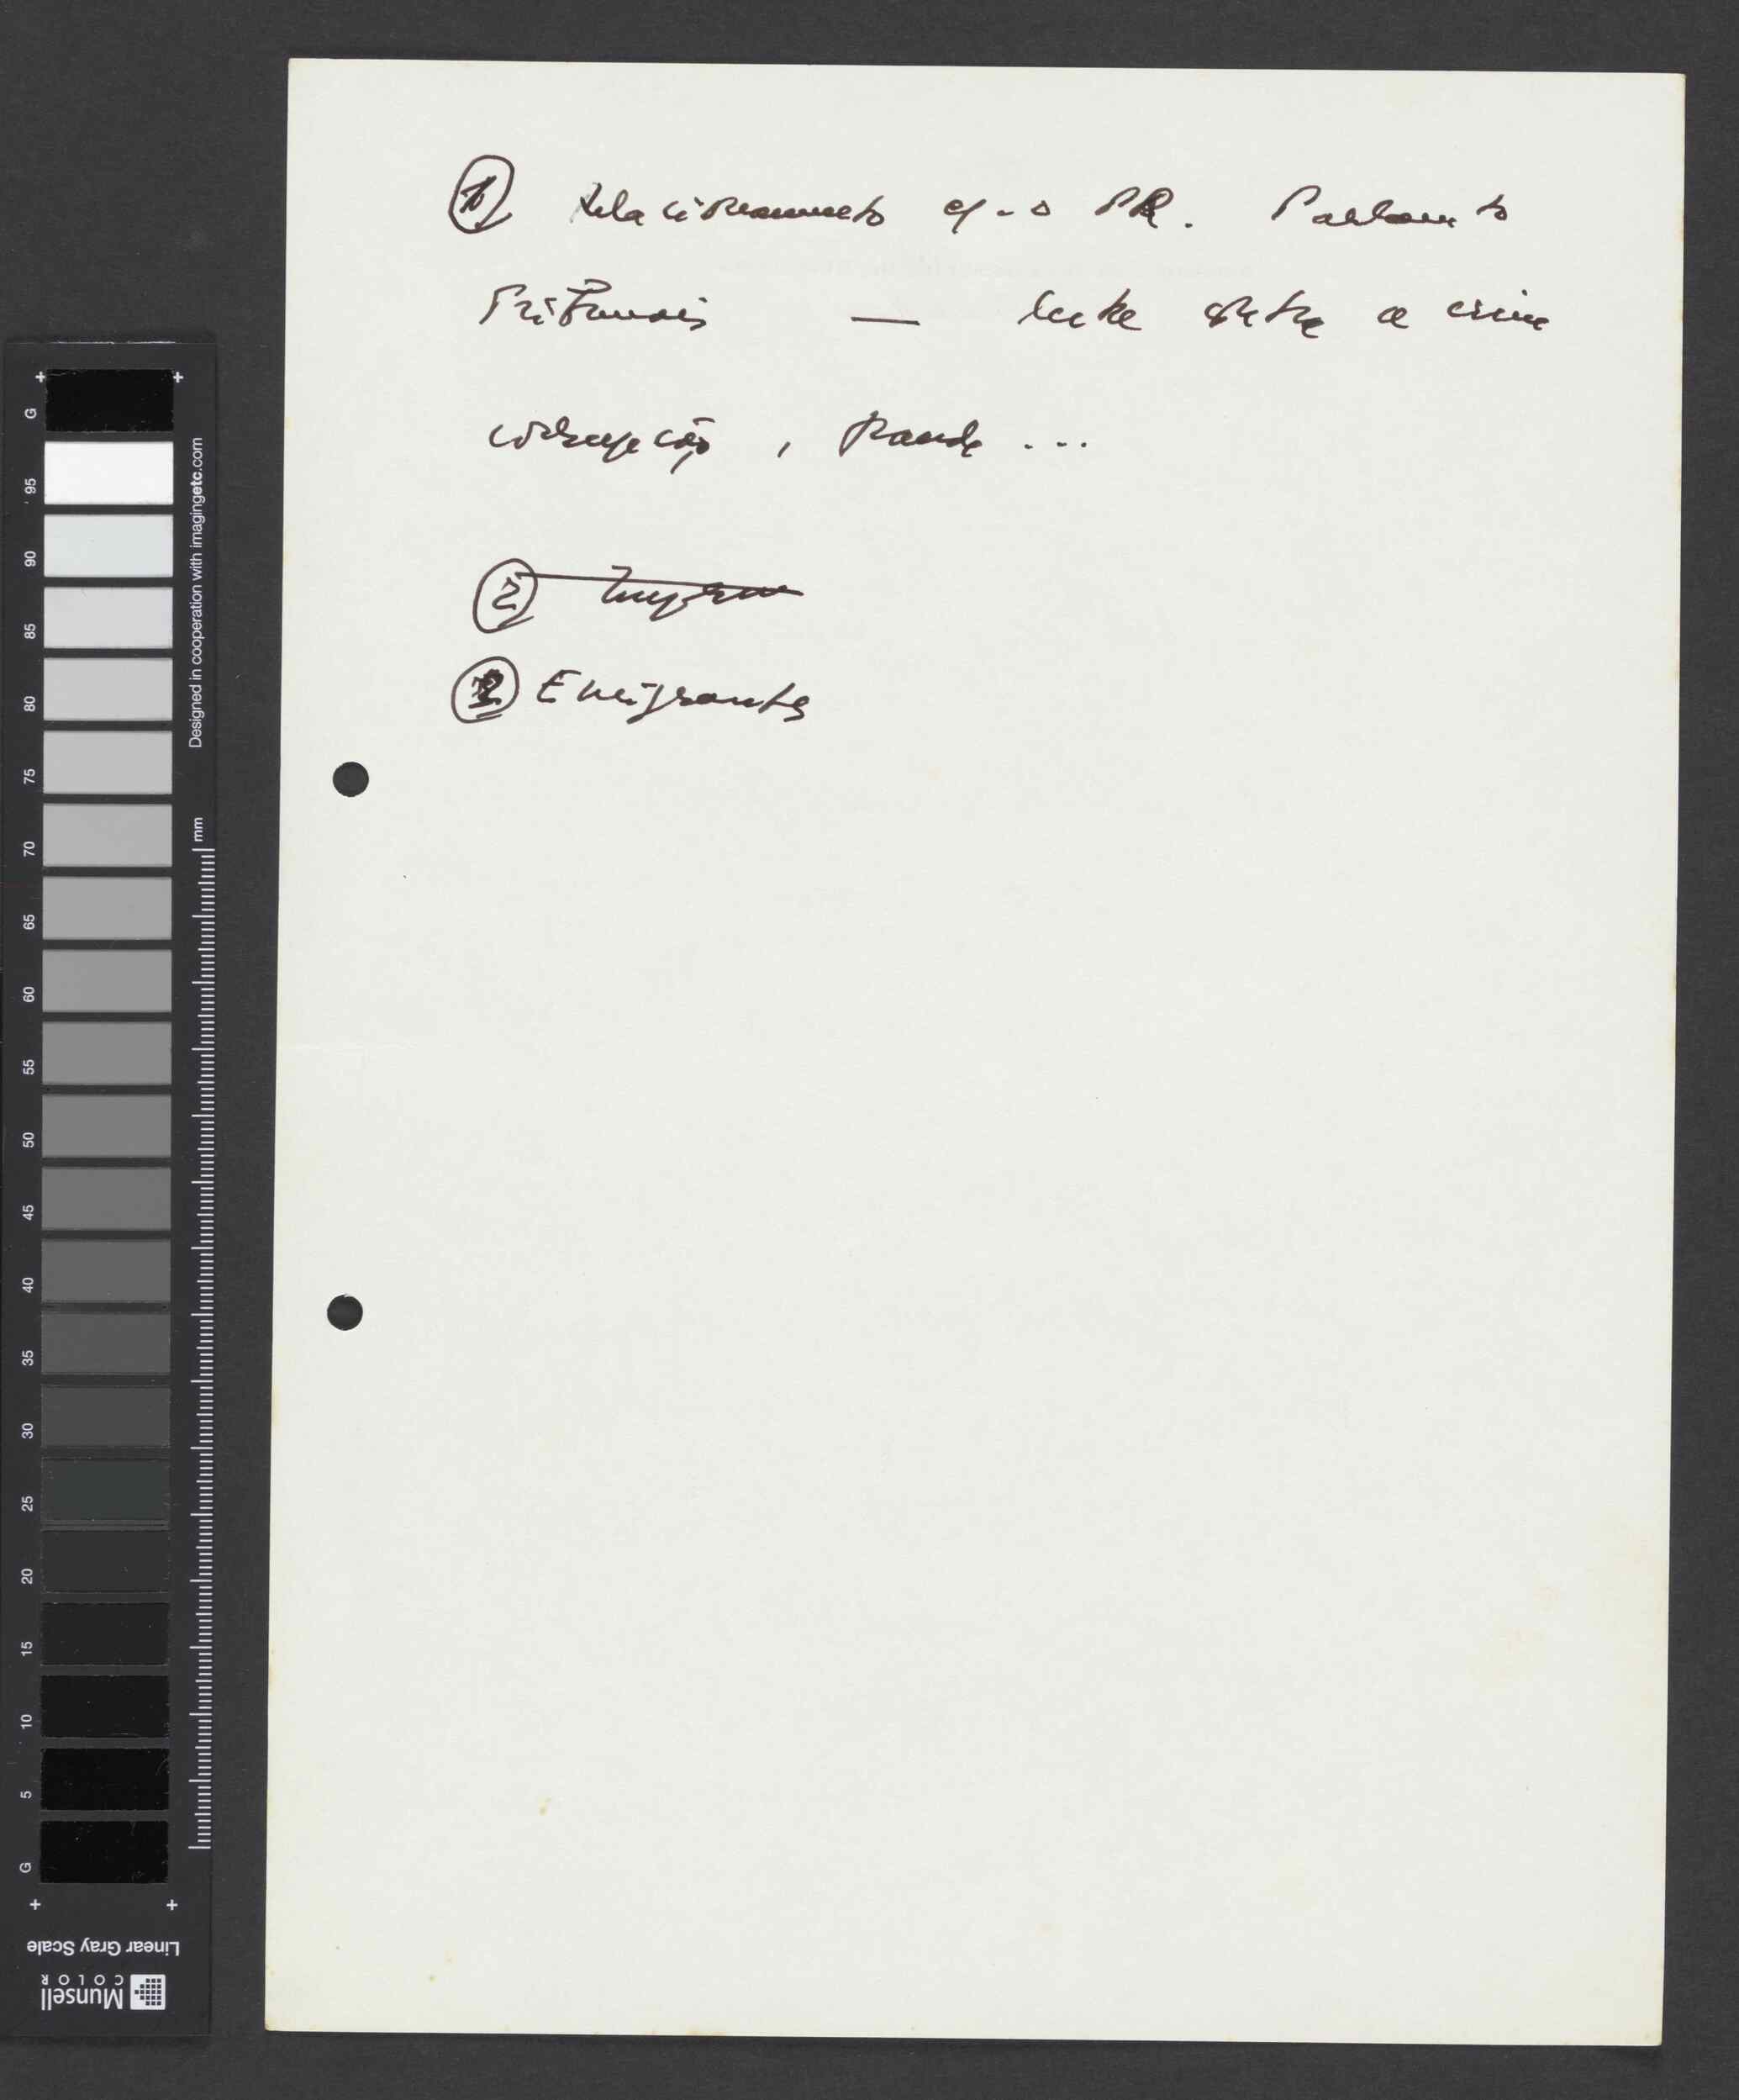 ① Relacionamento c/ o PR. Parlamento
Tribunais — luta contra o crime
corrupção, fraude ...
②
② Emigrantes
G
95
90
85
80
75
70
65
60
55
50
45
40
35
30
25
20
15
10
5
G
Designed in cooperation with imagingetc.com
mm
Linear Gray Scale
Munsell
COLOR